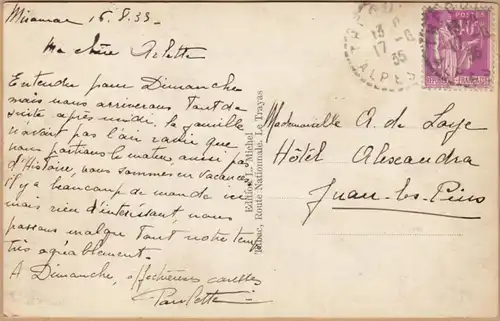 Miramar 16.8.35
Ma chère Arlette
Entendu pour Dimanche
mais nous arriverons tout de
suite après midi, la famille
n'ayant pas l'air ravie que
nous partions le matin, aussi pas
d'Histoire, nous sommes en vacances
il y a beaucoup de monde ici
mais rien d'intéressant, nous
passons malgré tout notre temps
très agréablement.
A Dimanche, affectueuses caresses
Paulette
Edition L. Michel
Tabac, Route Nationale. Le Trayas
Mademoiselle A. de Loye
Hôtel Alexandra
Juan-les-Pins
17-8
35
ALPES